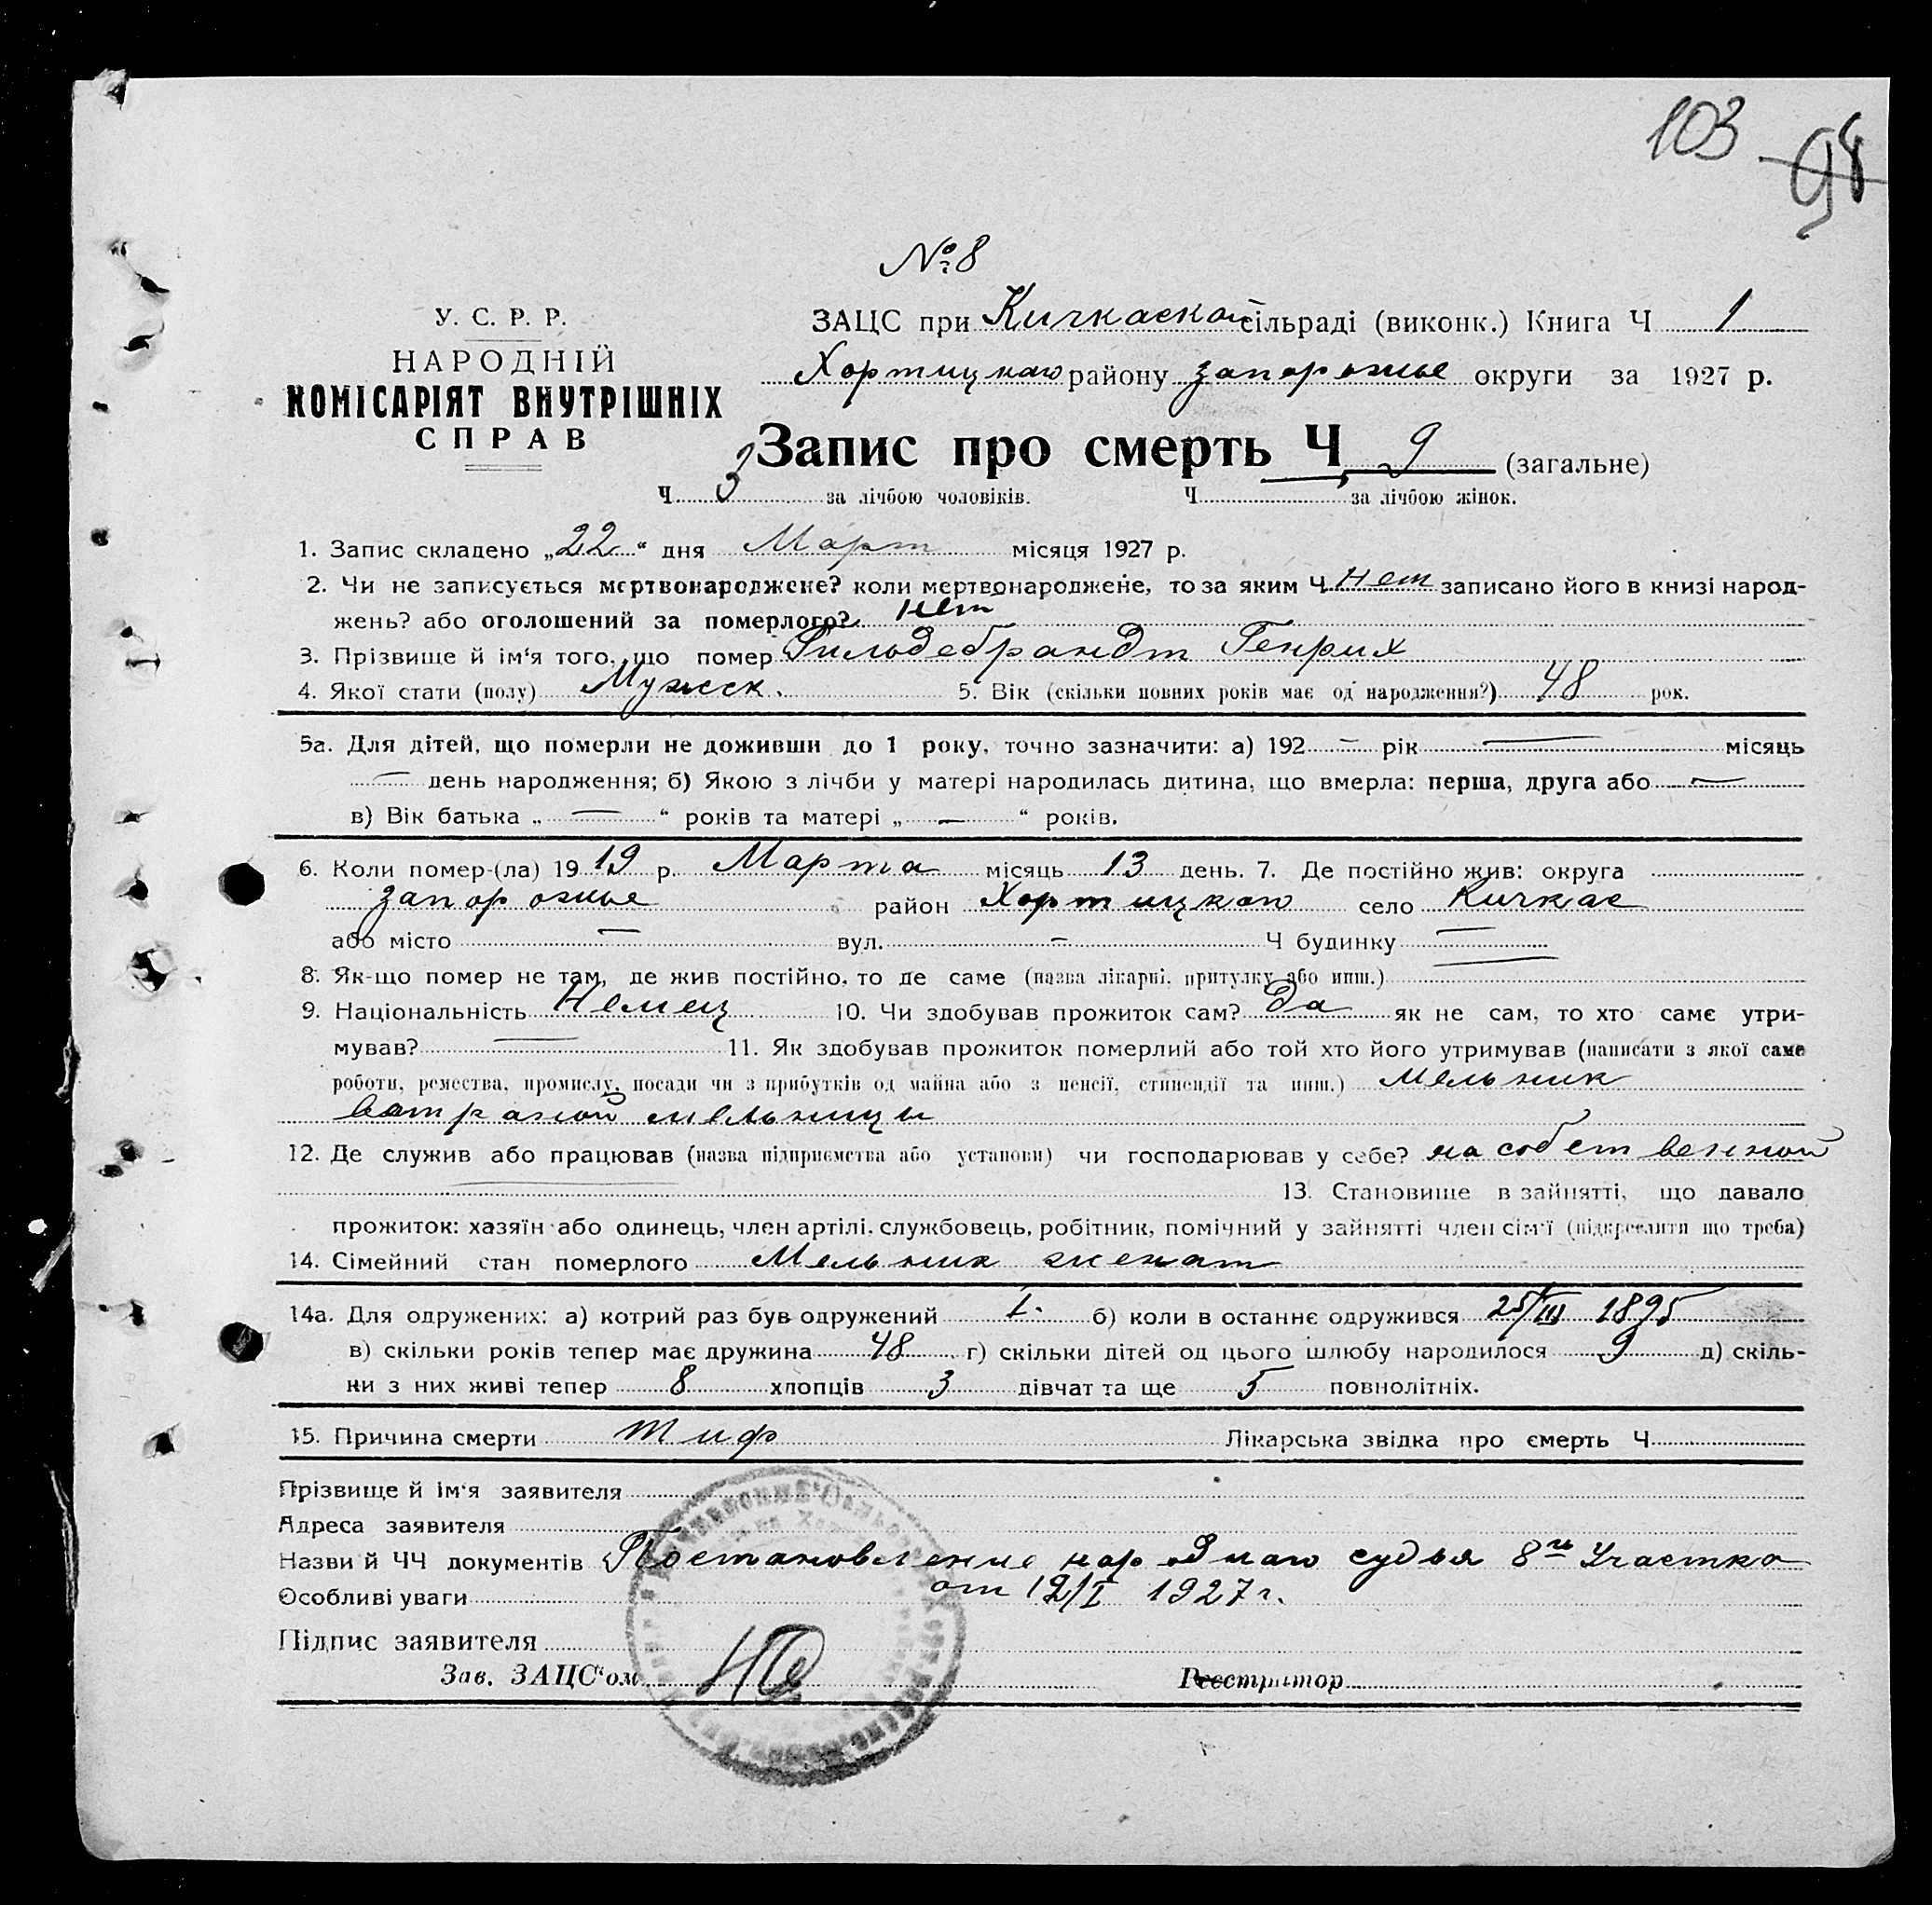 103 98
№ 8
У. С. Р. Р.
НАРОДНІЙ
КОМІСАРІЯТ ВНУТРІШНІХ
СПРАВ
ЗАЦС при Кичкаской сільраді (виконк.) Книга Ч 1
Хортицкаго району Запорожье округи за 1927 р.
Запис про смерть Ч 9 (загальне)
Ч 3 за лічбою чоловіків. Ч за лічбою жінок.
1. Запис складено „22“ дня Март місяця 1927 р.
2. Чи не записується мертвонароджене? коли мертвонароджене, то за яким Ч. нет записано його в книзі народ-
жень? або оголошений за померлого? нет
3. Прізвище й ім‘я того, що помер Гильдебрандт Генрих
4. Якої стати (полу) Мужеск. 5. Вік (скільки повних років має од народження?) 48 рок.
5а. Для дітей, що померли не доживши до 1 року, точно зазначити: а) 192 — рік — місяць
— день народження; б) Якою з лічби у матері народилась дитина, що вмерла: перша, друга або —
в) Вік батька „ — “ років та матері „ — “ років.
6. Коли помер-(ла) 1919 р. Марта місяць 13 день. 7. Де постійно жив: округа
Запорожье район Хортицкаго село Кичкас
або місто — вул. — Ч будинку —
8. Як-що помер не там, де жив постійно, то де саме (назва лікарні, притулку або инш.)
9. Національність Немец 10. Чи здобував прожиток сам? Да як не сам, то хто саме утри-
мував? — 11. Як здобував прожиток померлий або той хто його утримував (написати з якої саме
роботи, ремества, промислу, посади чи з прибутків од майна або з пенсії, стипендії та инш.) Мельник
ветряной мельницы
12. Де служив або працював (назва підприємства або установи) чи господарював у себе? на собственной
— 13. Становище в зайнятті, що давало
прожиток: хазяїн або одинець, член артілі, службовець, робітник, помічний у зайнятті член сім‘ї (підкреслити що треба)
14. Сімейний стан померлого Мельник женат
14а. Для одружених: а) котрий раз був одружений I. б) коли в останнє одружився 25/III 1895
в) скільки років тепер має дружина 48 г) скільки дітей од цього шлюбу народилося 9 д) скіль-
ки з них живі тепер 8 хлопців 3 дівчат та ще 5 повнолітніх.
15. Причина смерти тиф Лікарська звідка про смерть Ч
Прізвище й ім‘я заявителя
Адреса заявителя
Назви й ЧЧ документів Постановление народнаго судья 8го Участка
Особливі уваги от 12/I 1927 г.
Підпис заявителя
Зав. ЗАЦС‘ом Реєстратор